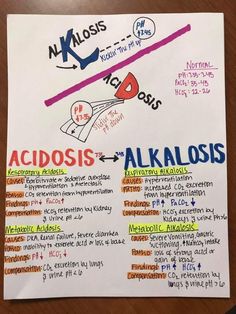 ALKALOSIS
pH >7.45
Kickin' the pH up
ACIDOSIS
pH <7.35
Slidin' the pH down
Normal
HCO₃: 22-26
ACIDOSIS ↔ ALKALOSIS
Respiratory Acidosis
Causes:
& Hypoventilation & Atelectasis
CO₂ retention from hypoventilation
Findings: pH↓ PaCO₂↑
Compensation: HCO₃ retention by Kidney
& urine pH <6
Metabolic Acidosis
Causes: DKA, Renal failure, Severe diarrhea
inability to excrete acid or loss of base
Findings: pH↓ HCO₃↓
Compensation: CO₂ excretion by lungs
& urine pH <6
Respiratory Alkalosis
Causes: Hyperventilation
increased CO₂ excretion
from hyperventilation
Findings: pH↑ PaCO₂↓
Compensation: HCO₃ excretion by
Kidneys & urine pH >6
Metabolic Alkalosis
Causes: Severe Vomiting, Gastric
suctioning, intake
loss of strong acid or
gain of base
Findings: pH↑ HCO₃↑
Compensation: CO₂ retention by
lungs & urine pH >6